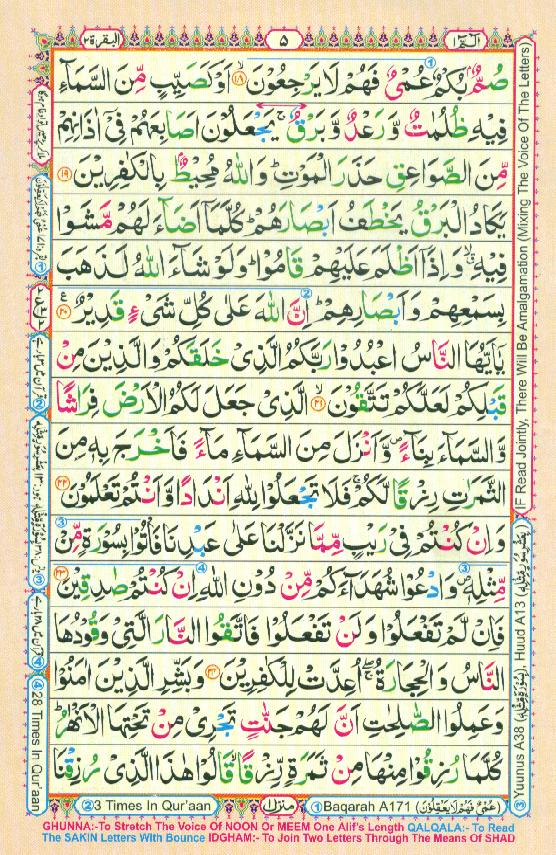 البقرة ٢
٥
الٓمّٓ ١
صُمٌّۢ بُكْمٌ عُمْيٌ فَهُمْ لَا يَرْجِعُوْنَ ۙ﴿۱۸﴾ اَوْ كَصَيِّبٍ مِّنَ السَّمَآءِ
فِيْهِ ظُلُمٰتٌ وَّ رَعْدٌ وَّ بَرْقٌ ۚ يَجْعَلُوْنَ اَصَابِعَهُمْ فِيْۤ اٰذَانِهِمْ
مِّنَ الصَّوَاعِقِ حَذَرَ الْمَوْتِ ؕ وَاللّٰهُ مُحِيْطٌۢ بِالْكٰفِرِيْنَ ﴿۱۹﴾
يَكَادُ الْبَرْقُ يَخْطَفُ اَبْصَارَهُمْ ؕ كُلَّمَاۤ اَضَآءَ لَهُمْ مَّشَوْا
فِيْهِ ۙ وَ اِذَاۤ اَظْلَمَ عَلَيْهِمْ قَامُوْا ؕ وَلَوْ شَآءَ اللّٰهُ لَذَهَبَ
بِسَمْعِهِمْ وَ اَبْصَارِهِمْ ؕ اِنَّ اللّٰهَ عَلٰى كُلِّ شَيْءٍ قَدِيْرٌ ﴿۲۰﴾ ع
يٰۤاَيُّهَا النَّاسُ اعْبُدُوْا رَبَّكُمُ الَّذِيْ خَلَقَكُمْ وَ الَّذِيْنَ مِنْ
قَبْلِكُمْ لَعَلَّكُمْ تَتَّقُوْنَ ۙ﴿۲۱﴾ الَّذِيْ جَعَلَ لَكُمُ الْاَرْضَ فِرَاشًا
وَّ السَّمَآءَ بِنَآءً ۪ وَّ اَنْزَلَ مِنَ السَّمَآءِ مَآءً فَاَخْرَجَ بِهٖ مِنَ
الثَّمَرٰتِ رِزْقًا لَّكُمْ ۚ فَلَا تَجْعَلُوْا لِلّٰهِ اَنْدَادًا وَّ اَنْتُمْ تَعْلَمُوْنَ ﴿۲۲﴾
وَ اِنْ كُنْتُمْ فِيْ رَيْبٍ مِّمَّا نَزَّلْنَا عَلٰى عَبْدِنَا فَاْتُوْا بِسُوْرَةٍ مِّنْ
مِّثْلِهٖ ۪ وَ ادْعُوْا شُهَدَآءَكُمْ مِّنْ دُوْنِ اللّٰهِ اِنْ كُنْتُمْ صٰدِقِيْنَ ﴿۲۳﴾
فَاِنْ لَّمْ تَفْعَلُوْا وَ لَنْ تَفْعَلُوْا فَاتَّقُوا النَّارَ الَّتِيْ وَقُوْدُهَا
النَّاسُ وَ الْحِجَارَةُ ۖۚ اُعِدَّتْ لِلْكٰفِرِيْنَ ﴿۲۴﴾ وَ بَشِّرِ الَّذِيْنَ اٰمَنُوْا
وَ عَمِلُوا الصّٰلِحٰتِ اَنَّ لَهُمْ جَنّٰتٍ تَجْرِيْ مِنْ تَحْتِهَا الْاَنْهٰرُ ؕ
كُلَّمَا رُزِقُوْا مِنْهَا مِنْ ثَمَرَةٍ رِّزْقًا ۙ قَالُوْا هٰذَا الَّذِيْ رُزِقْنَا
② 3 Times In Qur'aan
منزل ١
① Baqarah A171 (عُمْيٌ فَهُمْ لَا يَعْقِلُوْنَ)
IF Read Jointly, There Will Be Amalgamation (Mixing The Voice Of The Letters)
③ Yuunus A38 (بِسُوْرَةٍ مِّثْلِهٖ), Huud A13 (بِعَشْرِ سُوَرٍ مِّثْلِهٖ)
④ 28 Times In Qur'aan
GHUNNA:-To Stretch The Voice Of NOON Or MEEM One Alif's Length QALQALA:- To Read
The SAKIN Letters With Bounce IDGHAM:- To Join Two Letters Through The Means Of SHAD